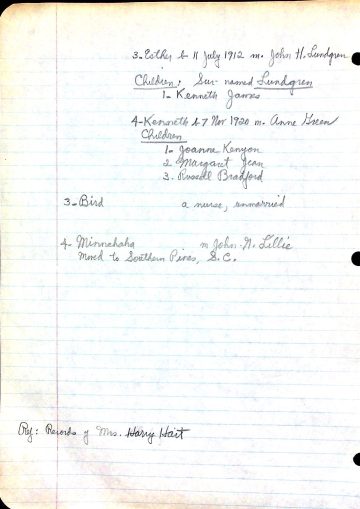 3- Esther b 11 July 1912 m. John H. Lundgren
Children: Sur-named Lundgren
1- Kenneth James
4- Kenneth b 7 Nov 1920 m- Anne Green
Children
1- Joanne Kenyon
2 Margaret Jean
3. Russell Bradford
3- Bird a nurse, unmarried
4- Minnehaha m John N. Lillie
moved to Southern Pines, S.C.
Ref: Records of Mrs. Harry Hart